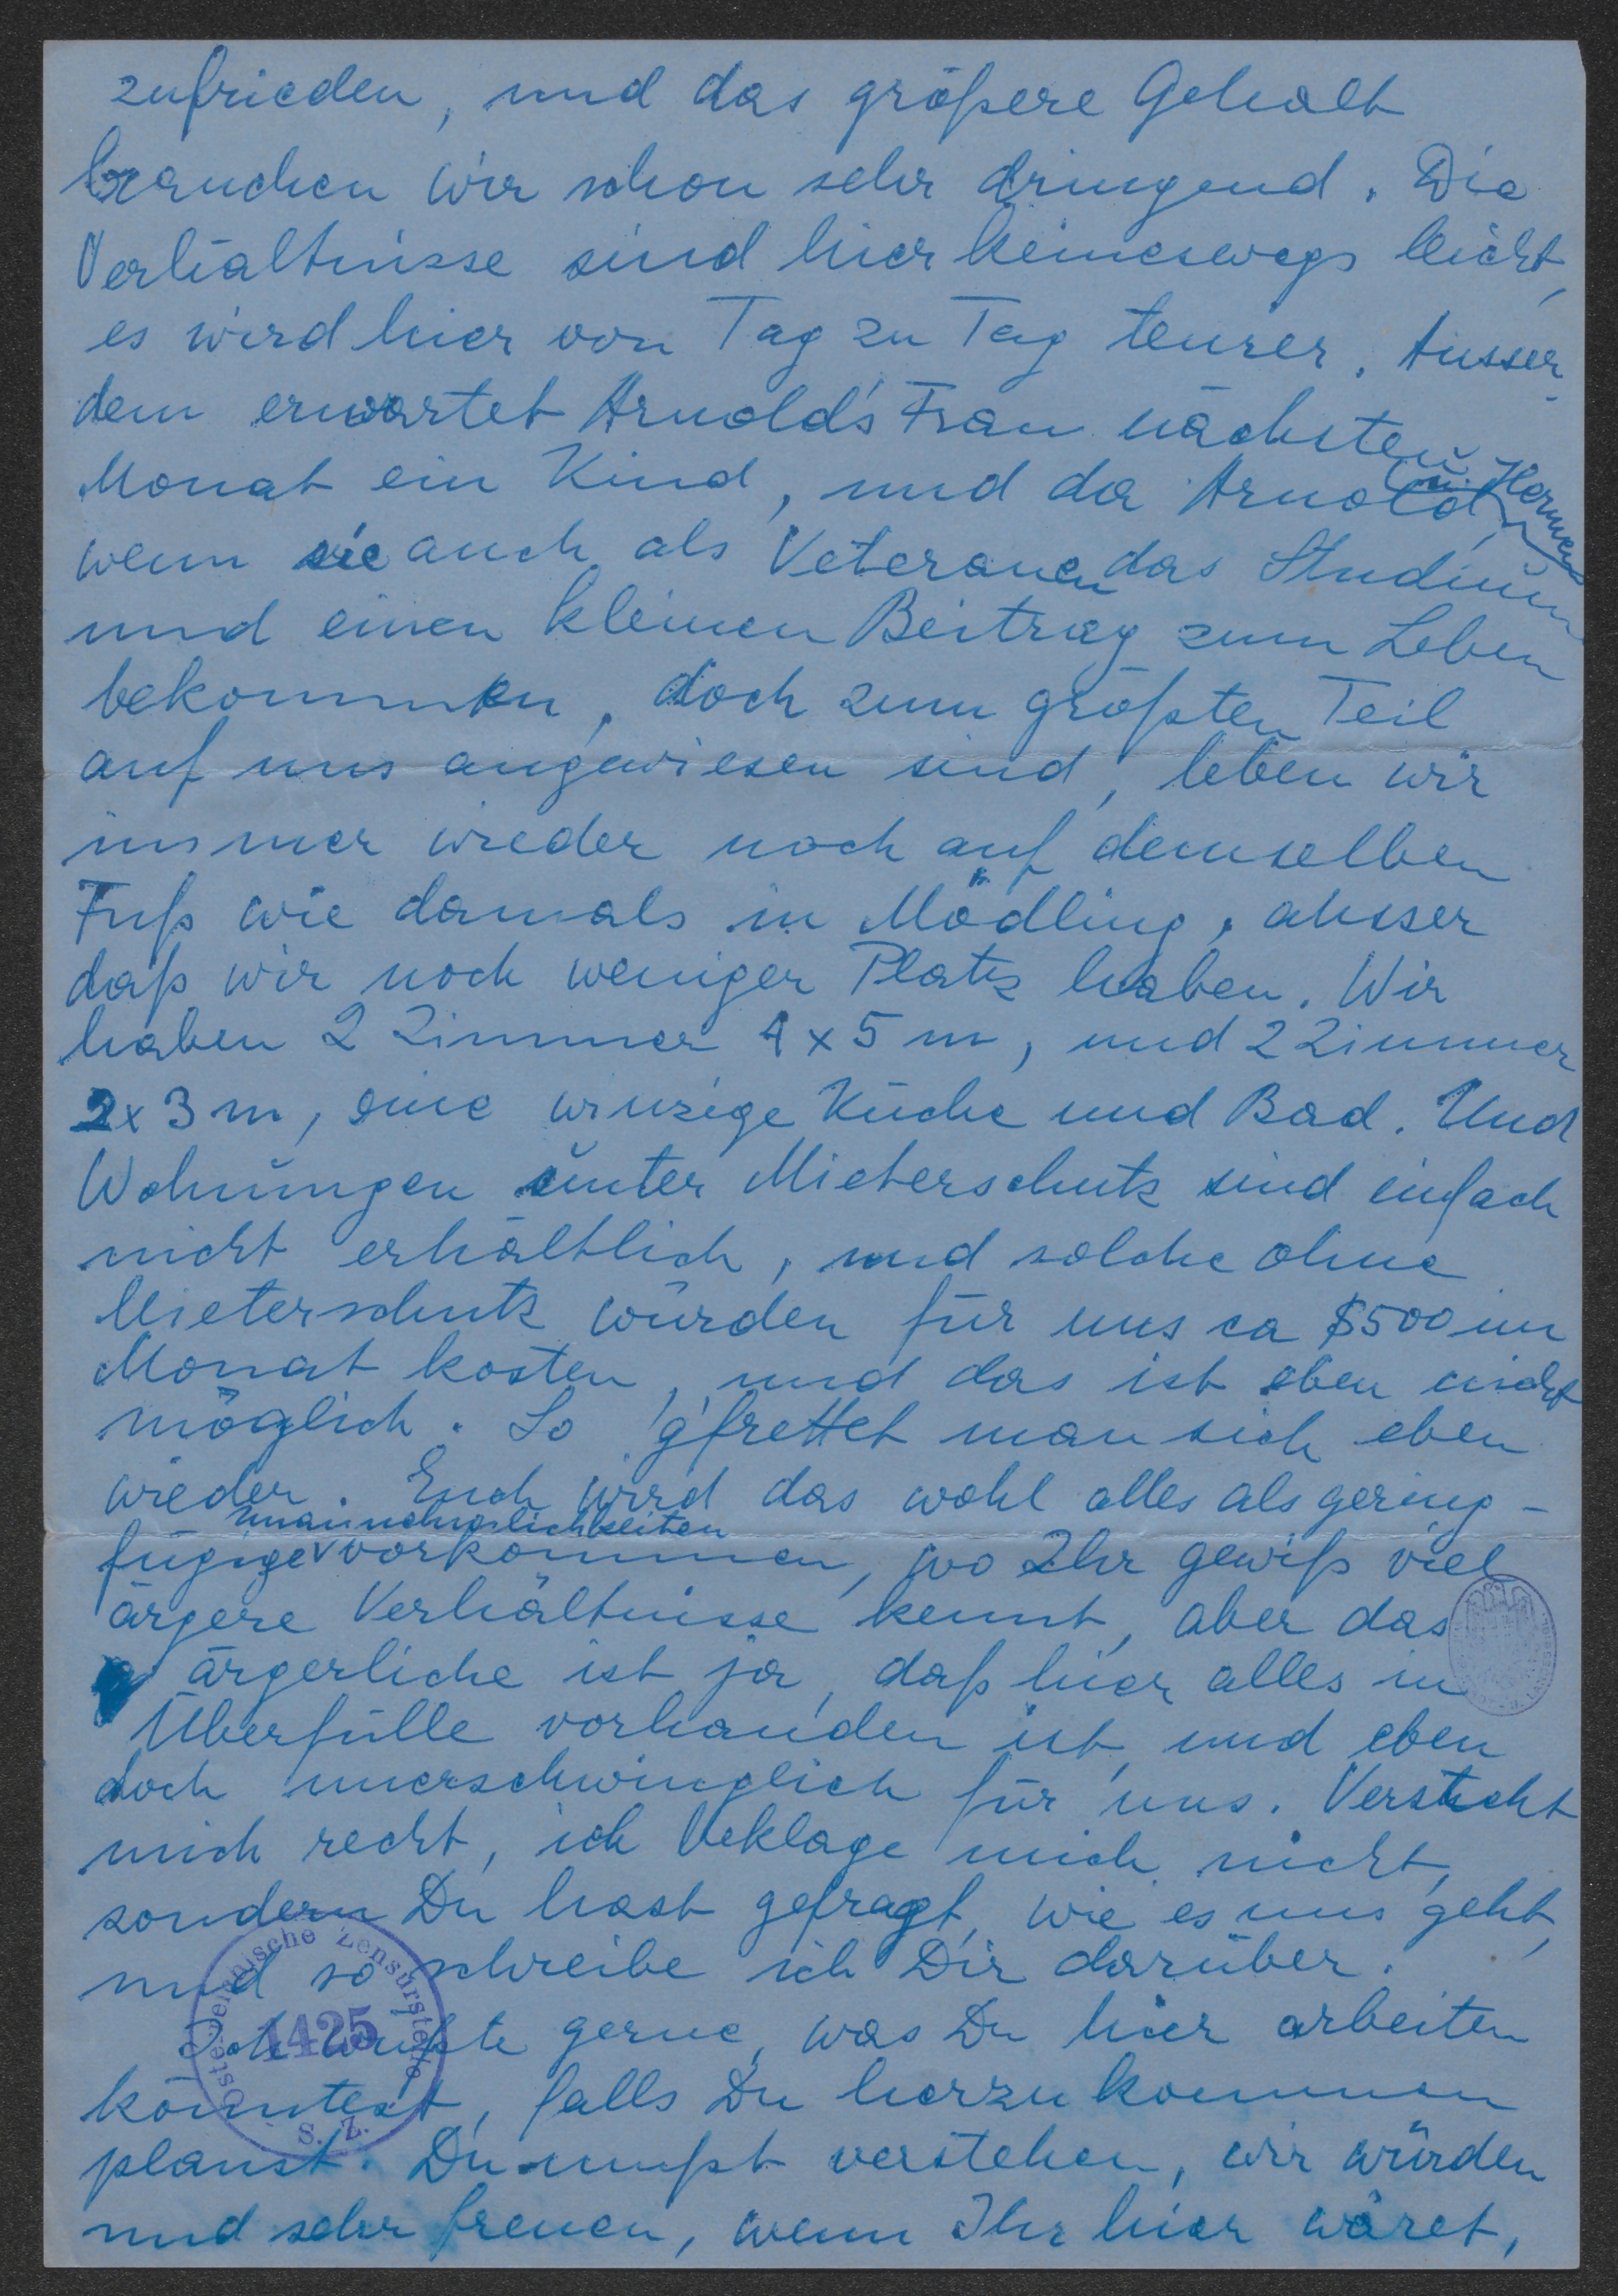 zufrieden, und das größere Gehalt
brauchen wir schon sehr dringend. Die
Verhältnisse sind hier keineswegs leicht,
es wird hier von Tag zu Tag teurer. Ausser-
dem erwartet Arnold's Frau nächsten
Monat ein Kind, und da Arnold u. Herman
wenn sie auch als Veteranen das Studium
und einen kleinen Beitrag zum Leben
bekommen, doch zum größten Teil
auf uns angewiesen sind, leben wir
immer wieder noch auf demselben
Fuß wie damals in Mödling, ausser
daß wir noch weniger Platz haben. Wir
haben 2 Zimmer 4 x 5 m, und 2 Zimmer
2 x 3 m, eine winzige Küche und Bad. Und
Wohnungen unter Mieterschutz sind einfach
nicht erhältlich, und solche ohne
Mieterschutz würden für uns ca $500 im
Monat kosten, und das ist eben nicht
möglich. So g'frettet man sich eben
wieder. Euch wird das wohl alles als gering-
fügige Unannehmlichkeiten vorkommen, wo Ihr gewiß viel
ärgere Verhältnisse kennt, aber das
ärgerliche ist ja, daß hier alles in
Überfülle vorhanden ist, und eben
doch unerschwinglich für uns. Versteht
mich recht, ich beklage mich nicht,
sondern Du hast gefragt, wie es uns geht,
und so schreibe ich Dir darüber.
Ich wüßte gerne, was Du hier arbeiten
könntest, falls Du herzukommen
planst. Du mußt verstehen, wir würden
und sehr freuen, wenn Ihr hier wäret,
Österreichische Zensurstelle
1425
S. Z.